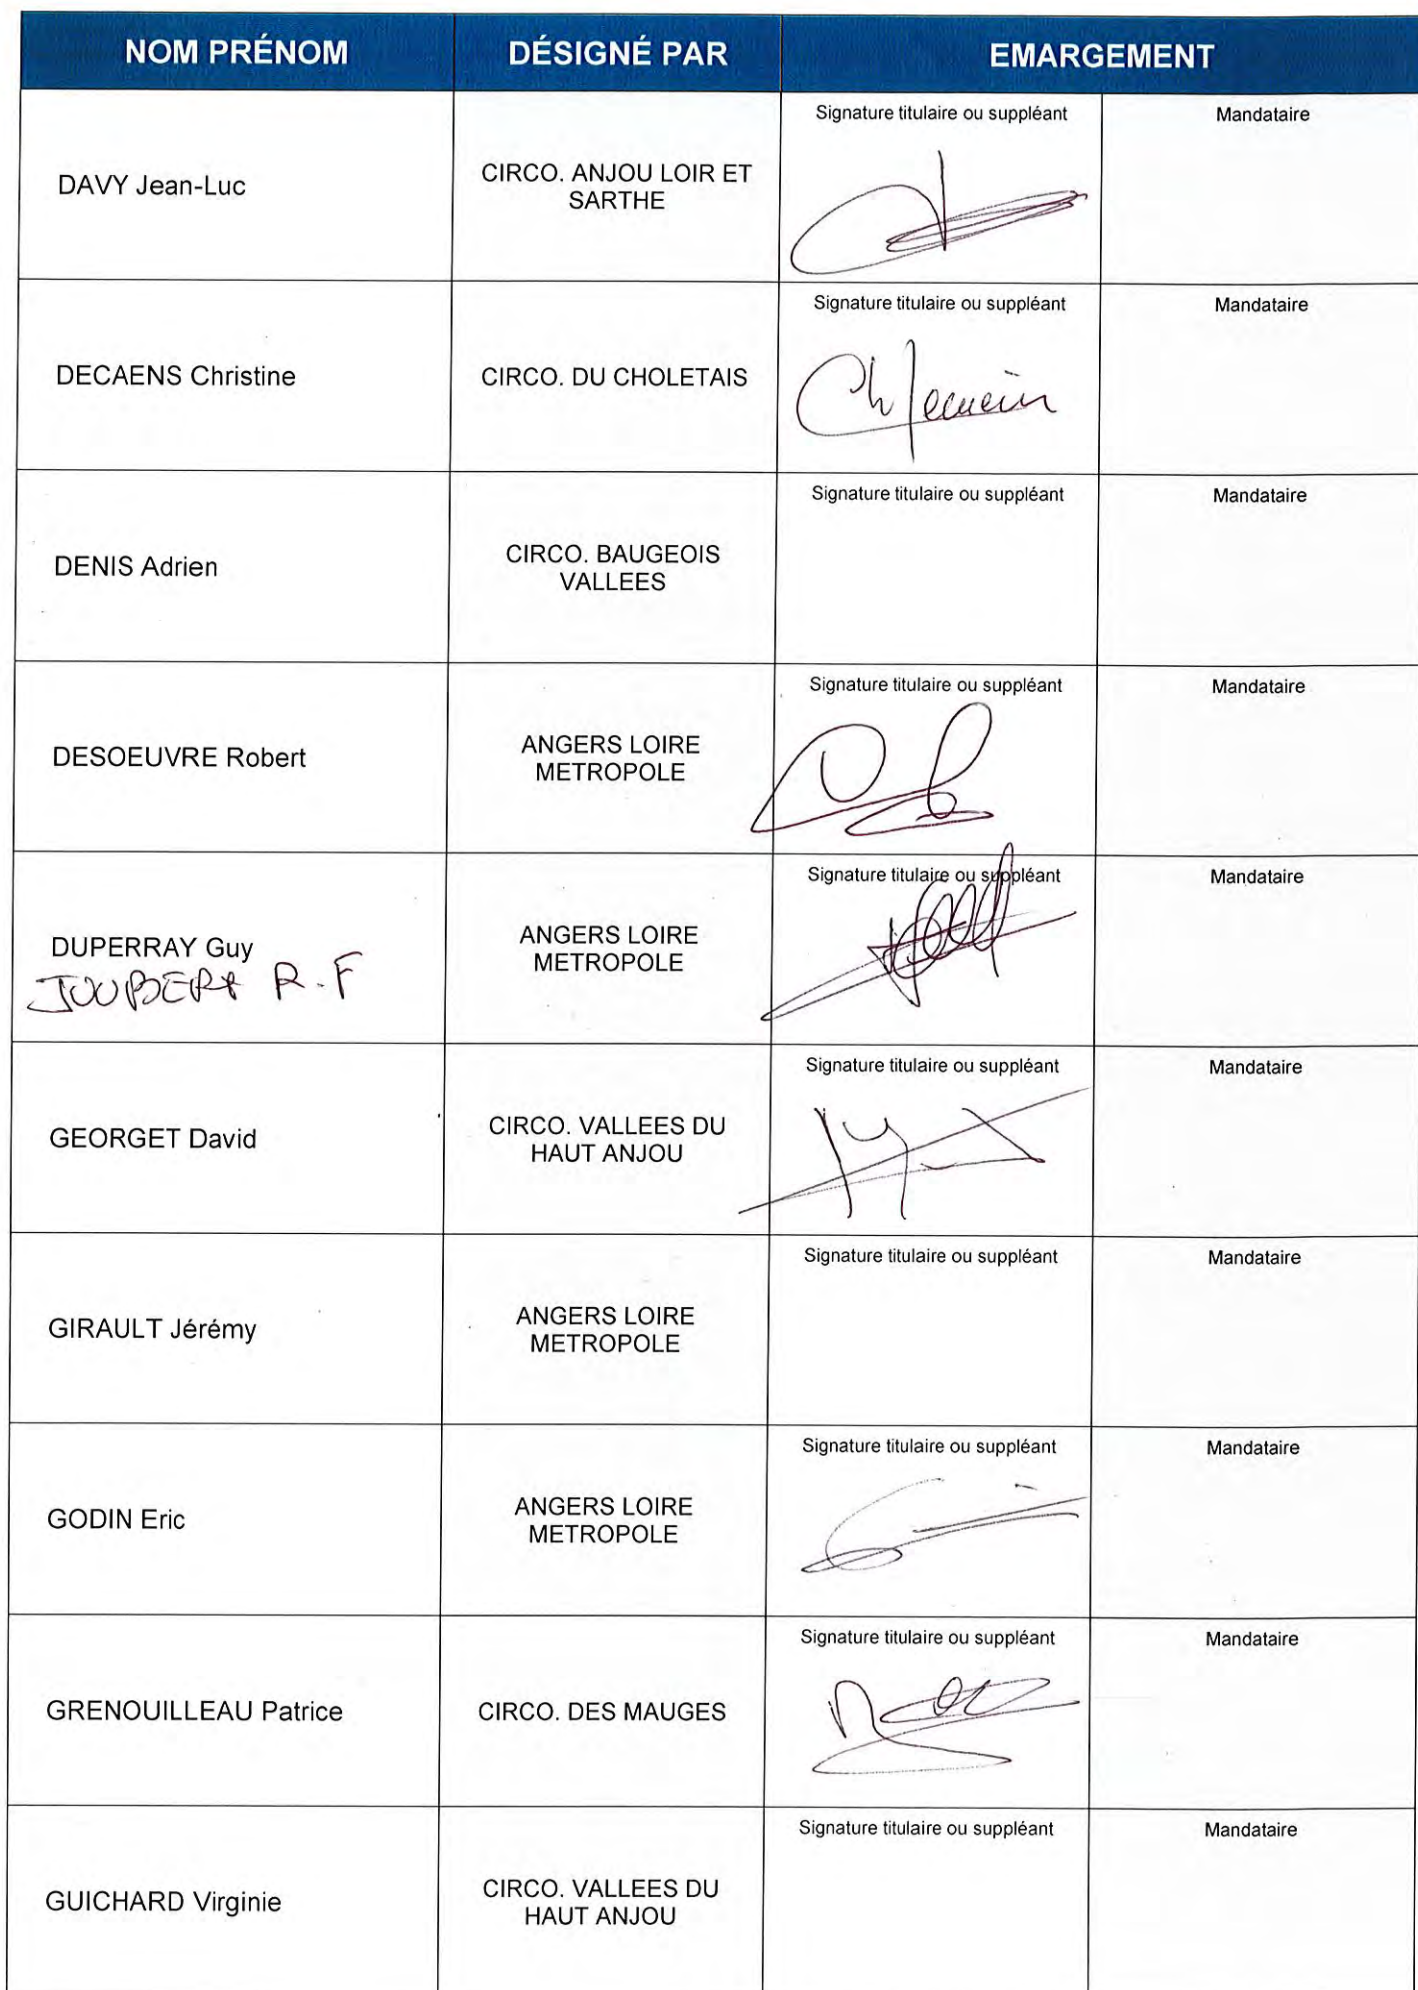 NOM PRÉNOM DÉSIGNÉ PAR EMARGEMENT
Signature titulaire ou suppléant Mandataire
DAVY Jean-Luc
CIRCO. ANJOU LOIR ET
SARTHE
Signature titulaire ou suppléant Mandataire
DECAENS Christine
CIRCO. DU CHOLETAIS
Signature titulaire ou suppléant Mandataire
DENIS Adrien
CIRCO. BAUGEOIS
VALLEES
Signature titulaire ou suppléant Mandataire
DESOEUVRE Robert
ANGERS LOIRE
METROPOLE
Signature titulaire ou suppléant Mandataire
DUPERRAY Guy
JOUBERT R.F
ANGERS LOIRE
METROPOLE
Signature titulaire ou suppléant Mandataire
GEORGET David
CIRCO. VALLEES DU
HAUT ANJOU
Signature titulaire ou suppléant Mandataire
GIRAULT Jérémy
ANGERS LOIRE
METROPOLE
Signature titulaire ou suppléant Mandataire
GODIN Eric
ANGERS LOIRE
METROPOLE
Signature titulaire ou suppléant Mandataire
GRENOUILLEAU Patrice
CIRCO. DES MAUGES
Signature titulaire ou suppléant Mandataire
GUICHARD Virginie
CIRCO. VALLEES DU
HAUT ANJOU